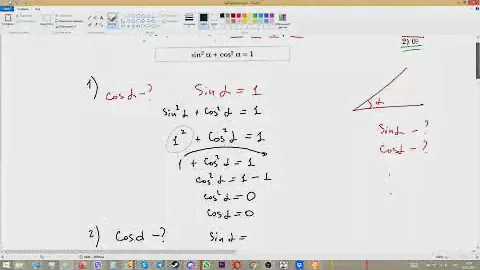 sin² α + cos² α = 1
1) cosα - ? sinα = 1
sin²α + cos²α = 1
1² + cos²α = 1
1 + cos²α = 1
cos²α = 1 - 1
cos²α = 0
cosα = 0
2) cosα - ? sinα =
α
sinα - ?
cosα - ?